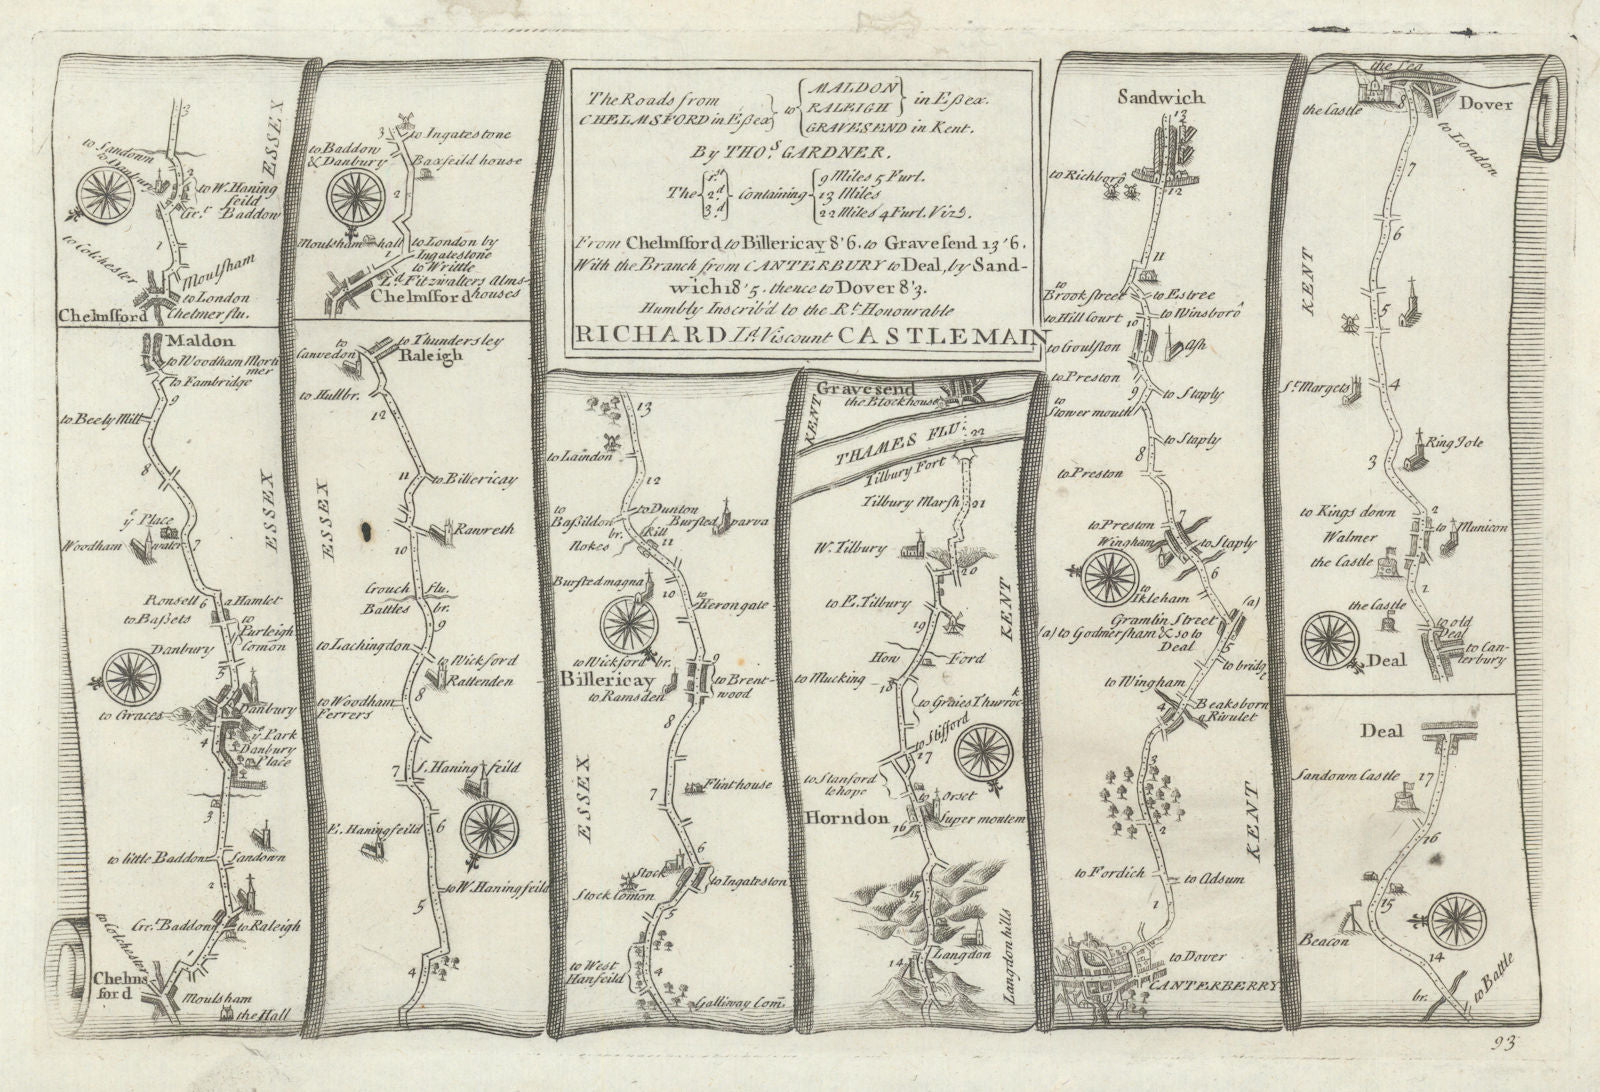 The Roads from
CHELMSFORD in Eßex
to
MALDON
RALEIGH
in Eßex.
GRAVESEND in Kent.
By THOs. GARDNER.
The
1st
2d
3d
Containing
9 Miles 5 Furl.
13 Miles
22 Miles 4 Furl. Vizt.
From Chelmsford to Billericay 8'6. to Gravesend 13'6.
With the Branch from CANTERBURY to Deal, by Sand-
wich 18'5. thence to Dover 8'3.
Humbly Inscrib'd to the Rt. Honourable
RICHARD Ld. Viscount CASTLEMAIN
3
ESSEX
to Sandown
to Danbury
2
to W. Haning
feild
Grt. Baddow
1
to Colchester
Moulsham
to London
Chelmsford
Chelmer flu.
Maldon
to Woodham Morti
mer
to Fambridge
9
to Beely Mill
8
ESSEX
ye Place
Woodham
water
7
Ronsell
6
a Hamlet
to Baßets
to
Purleigh
Comon
Danbury
5
to Graces
Danbury
4
ye Park
Danbury
Place
3
to little Baddow
Sandown
2
Grt. Baddow
to Raleigh
1
to Colchester
Chelms
ford
Moulsham
the Hall
3
to Ingatestone
to Baddow
& Danbury
Baxfeild house
2
Moulsham hall
to London by
Ingatestone
1
to Writtle
Ld. Fitzwalters Alms-
houses
Chelmsford
to
Canvedon
to Thundersley
Raleigh
to Hullbr.
12
11
to Billericay
ESSEX
Rawreth
10
Crouch flu.
Battles br.
9
to Lachingdon
to Wickford
Rattenden
8
to Woodham
Ferrers
7
S. Haningfeild
E. Haningfeild
6
to W. Haningfeild
5
4
13
to Laindon
12
to Dunton
to
Baßildon
Bursted parva
br.
Kill
Nokes
11
Bursted magna
10
to
Herongate
to Wickford br.
9
Billericay
to Brent-
wood
to Ramsden
8
ESSEX
Flint house
7
6
Stock
to Ingateston
Stock Comōn
5
to West
Hanfeild
4
Gallway Com.
Gravesend
the Blockhouse
KENT
THAMES FLU:
22
Tilbury Fort
Tilbury Marsh
21
W. Tilbury
20
KENT
to E. Tilbury
19
How Ford
to Mucking
18
to Graies Thurrock
to Stifford
17
to Stanford
le hope
to
Orset
Horndon
16
Super montem
15
Langdon hills
14
Langdon
Sandwich
13
to Richboro
12
11
to
Brook street
to Estree
to Hill Court
10
to Winsboro
to Goulston
Ash
to Preston
9
to Staply
to
Stower mouth
to Staply
8
to Preston
to Preston
7
Wingham
to Staply
6
to
Ikleham
Gramlin Street
(a)
(a) to Godmersham & so to
Deal
5
to bridge
to Wingham
4
Beaksborn
a Rivulet
3
KENT
2
to Fordich
to Adsum
1
to Dover
CANTERBERRY
the Sea
the Castle
8
Dover
to London
7
KENT
6
5
St. Margets
4
Ring Jole
3
to Kings down
2
to
Municon
Walmer
the Castle
1
the Castle
to old
Deal
Deal
to Can-
terbury
Deal
Sandown Castle
17
16
15
Beacon
14
br.
to Battle
93